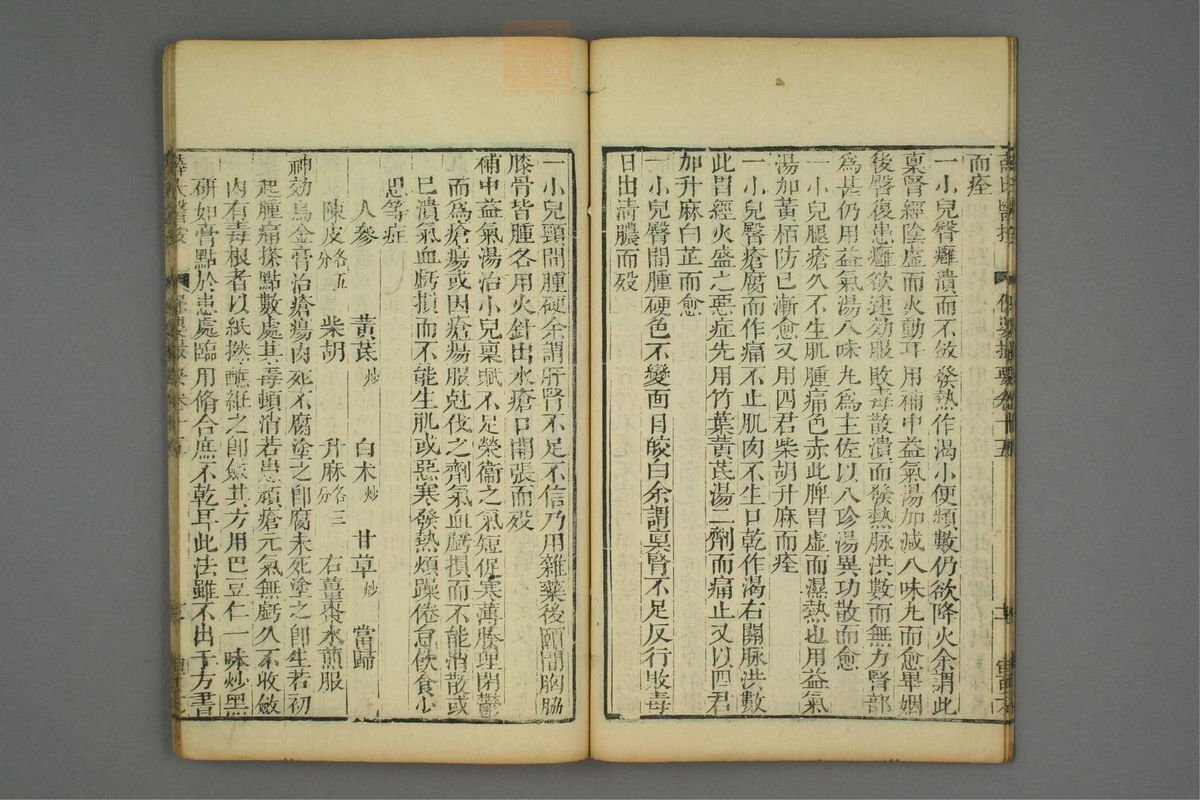 而痊
一小兒臀癰潰而不斂發熱作渴小便頻數仍欲降火余謂此
稟腎經陰虛而火動耳用補中益氣湯加減八味丸而愈畢姻
後臀復患癰欲速効服敗毒散潰而發熱脉洪數而無力腎部
為甚仍用益氣湯八味丸為主佐以八珍湯異功散而愈
一小兒腿瘡久不生肌腫痛色赤此脾胃虛而濕熱也用益氣
湯加黃栢防己漸愈又用四君柴胡升麻而痊
一小兒臀瘡腐而作痛不止肌肉不生口乾作渴右關脉洪數
此胃經火盛之惡症先用竹葉黃芪湯二劑而痛止又以四君
加升麻白芷而愈
一小兒臀間腫硬色不變面目皎白余謂稟腎不足反行敗毒
日出清膿而殁
保嬰撮要卷十五
一小兒頸間腫硬余謂肝腎不足不信乃用雜藥後顱間胸脇
膝骨皆腫各用火針出水瘡口開張而殁
補中益氣湯治小兒稟賦不足榮衞之氣短促寒薄腠理閉鬱
而為瘡瘍或因瘡瘍服尅伐之劑氣血虧損而不能消散或
已潰氣血虧損而不能生肌或惡寒發熱煩躁倦怠飲食少
思等症
人參 黃芪炒 白木炒 甘草炒 當歸
陳皮各五分 柴胡 升麻各三分 右薑棗水煎服
神効烏金膏治瘡瘍肉死不腐塗之即腐未死塗之即生若初
起腫痛搽點數處其毒頓消若患頑瘡元氣無虧久不收斂
內有毒根者以紙撚蘸紝之即斂其方用巴豆仁一味炒黑
研如膏點於患處臨用脩合庶不乾耳此法雖不出于方書